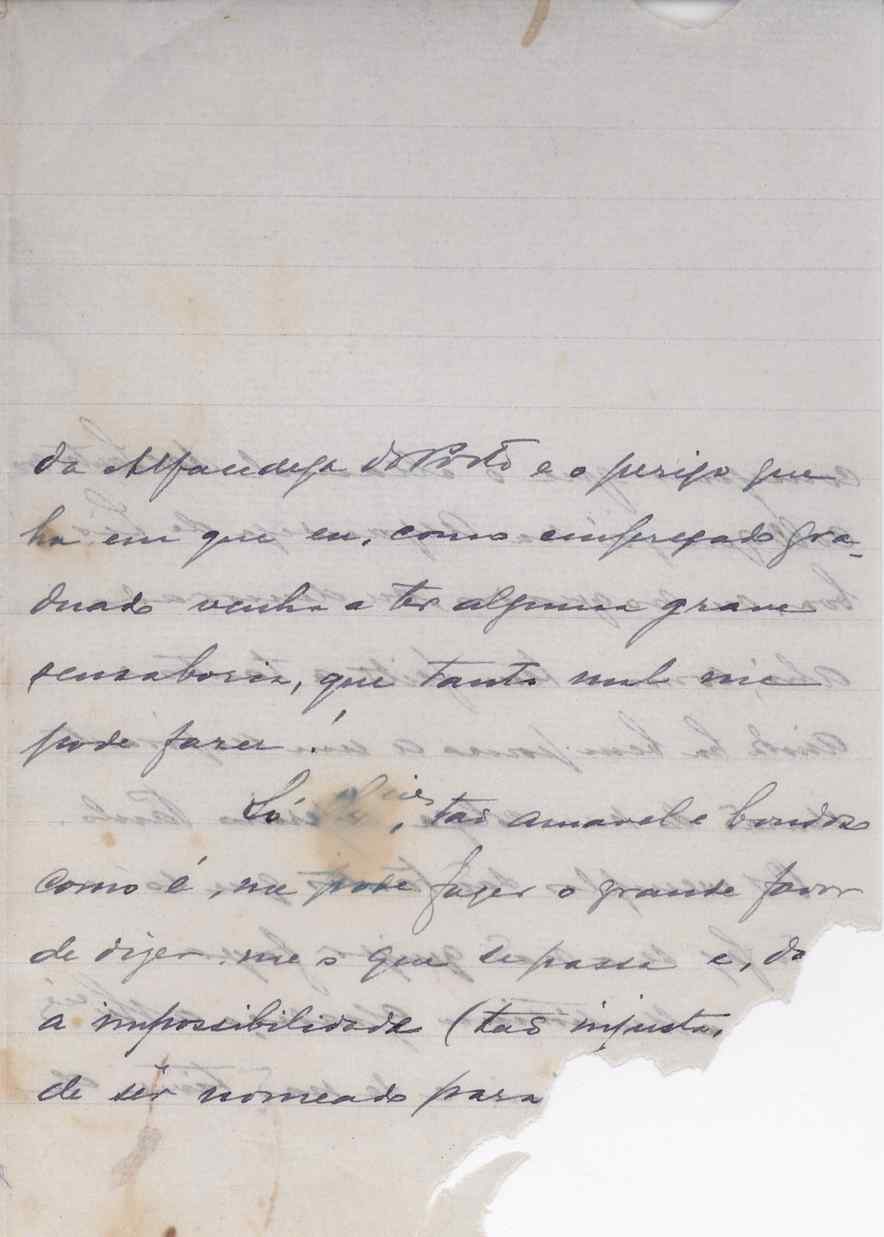 da Alfandega do Porto e o perigo que
ha em que eu, como empregado gra-
duado venha a ter alguma grave
sensaboria, que tanto mal me
pode fazer!
Só, tão amavel e bondoso
como é, me pode fazer o grande favor
de dizer-me o que se passa e, da
a impossibilidade (tão injusta,
de ser nomeado para